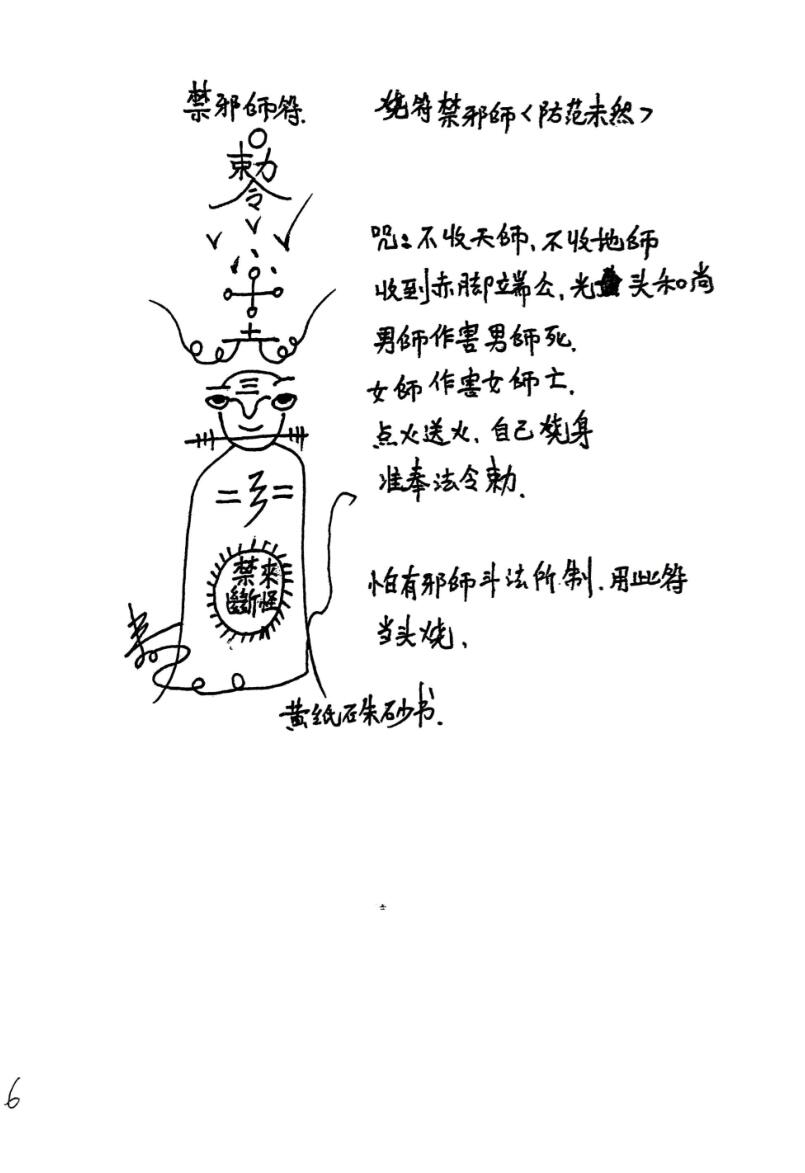 禁邪师符.
烧符禁邪师<防范未然>
敕
令
咒:不收天師、不收地師
收到赤脚端公,光头和尚
男師作害男師死.
女師作害女師亡.
点火送火、自己燒身
准奉法令勅.
禁來
斷怪
怕有邪師斗法所制.用此符
当头燒、
黄纸石朱砂书.
6